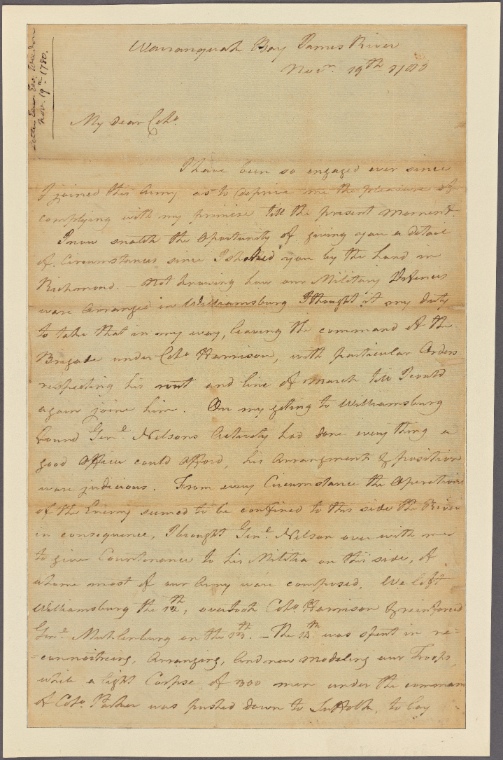 Nov. 19th 1780.
Bay James River
Novr. 19th 1780
My dear Colo.
I have been so engaged ever since
I joined this Army as to deprive me the pleasure of
complying with my promise till the present moment
I now snatch the opportunity of giving you a detail
of Circumstances since I shaked you by the hand in
Richmond. Not knowing how our Military Defences
were arranged in Williamsburg I thought it my duty
to take that in my way, leaving the command of the
Brigade under Colo. Harrison, with particular Orders
respecting his rout and line of March till I could
again join him. On my geting to Williamsburg
found Genl. Nelsons Activity had done every thing a
good officer could afford, his arrangments & positions
were judicious. From every Circumstance the Operations
of the Enemy seemed to be confined to this side the River
in consequence, I brought Genl. Nelson over with me
to give Countenance to his Militia on this side, of
whome most of our Army were composed. We left
Williamsburg the 12th, overtook Colo. Harrison & reinforced
Genl. Muhlenburg on the 13th. - The 14th was spent in re-
connoitring, Arranging, and new modeling our Troops,
while a light Corpse of 300 men under the command
of Colo. Parker was pushed down to Suffolk, to